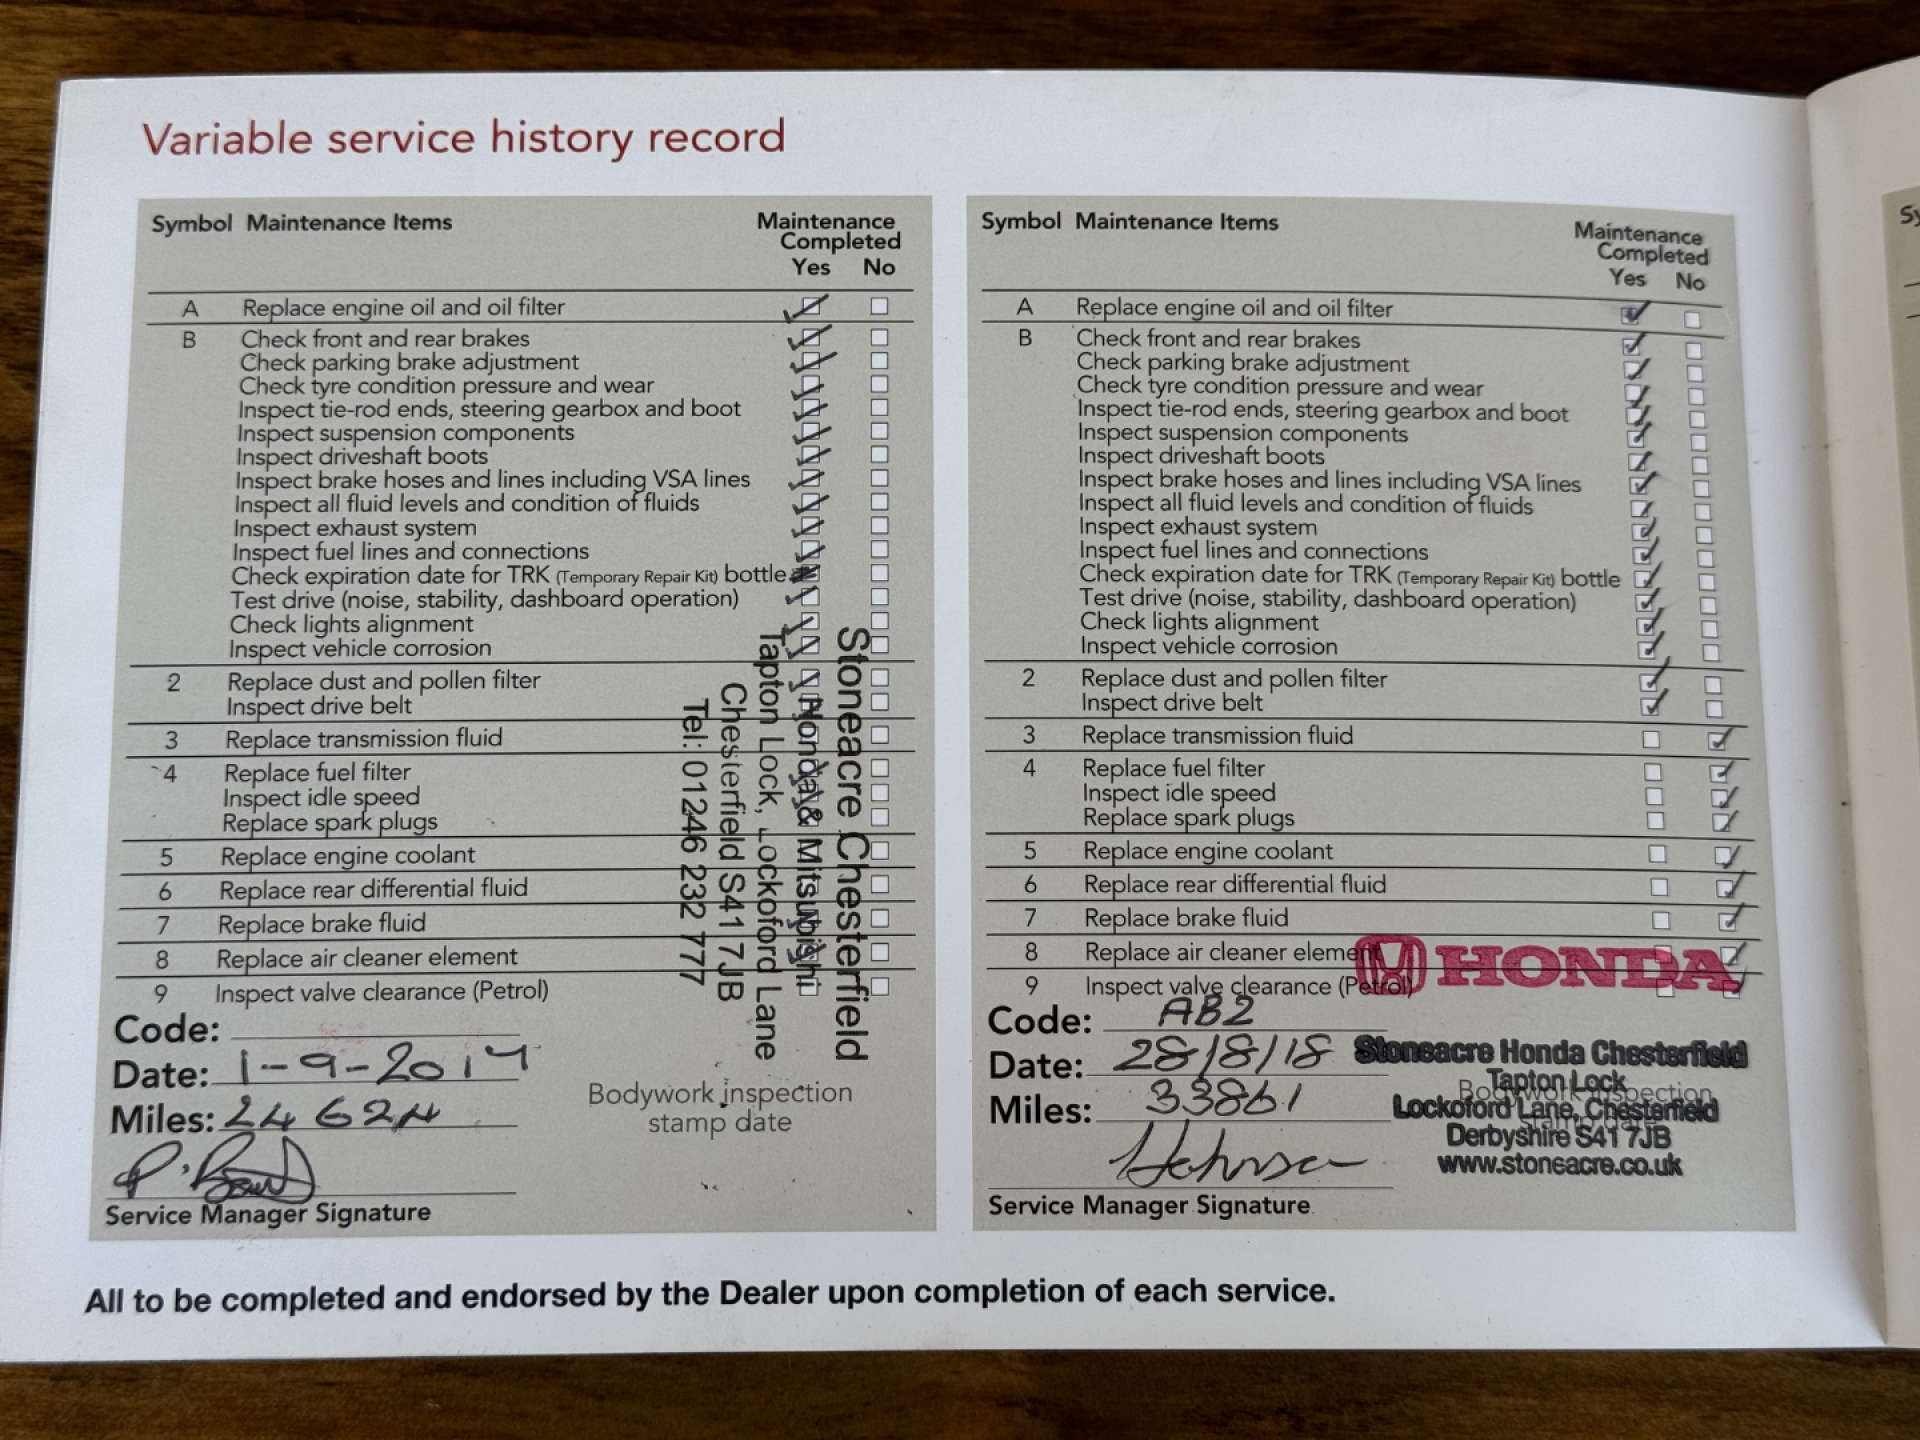 Variable service history record
Symbol Maintenance Items Maintenance Completed Yes No
A Replace engine oil and oil filter
B Check front and rear brakes
Check parking brake adjustment
Check tyre condition pressure and wear
Inspect tie-rod ends, steering gearbox and boot
Inspect suspension components
Inspect driveshaft boots
Inspect brake hoses and lines including VSA lines
Inspect all fluid levels and condition of fluids
Inspect exhaust system
Inspect fuel lines and connections
Check expiration date for TRK (Temporary Repair Kit) bottle
Test drive (noise, stability, dashboard operation)
Check lights alignment
Inspect vehicle corrosion
2 Replace dust and pollen filter
Inspect drive belt
3 Replace transmission fluid
4 Replace fuel filter
Inspect idle speed
Replace spark plugs
5 Replace engine coolant
6 Replace rear differential fluid
7 Replace brake fluid
8 Replace air cleaner element
9 Inspect valve clearance (Petrol)
Stoneacre Chesterfield
Honda & Mitsubishi
Tapton Lock, Lockoford Lane
Chesterfield S41 7JB
Tel: 01246 232 777
Code:
Date: 1-9-2017
Miles: 24624
Bodywork inspection
stamp date
Service Manager Signature
Symbol Maintenance Items Maintenance Completed Yes No
A Replace engine oil and oil filter
B Check front and rear brakes
Check parking brake adjustment
Check tyre condition pressure and wear
Inspect tie-rod ends, steering gearbox and boot
Inspect suspension components
Inspect driveshaft boots
Inspect brake hoses and lines including VSA lines
Inspect all fluid levels and condition of fluids
Inspect exhaust system
Inspect fuel lines and connections
Check expiration date for TRK (Temporary Repair Kit) bottle
Test drive (noise, stability, dashboard operation)
Check lights alignment
Inspect vehicle corrosion
2 Replace dust and pollen filter
Inspect drive belt
3 Replace transmission fluid
4 Replace fuel filter
Inspect idle speed
Replace spark plugs
5 Replace engine coolant
6 Replace rear differential fluid
7 Replace brake fluid
8 Replace air cleaner element
9 Inspect valve clearance (Petrol)
HONDA
Code: AB2
Date: 28/8/18
Miles: 33861
Stoneacre Honda Chesterfield
Tapton Lock
Lockoford Lane, Chesterfield
Derbyshire S41 7JB
www.stoneacre.co.uk
Bodywork inspection
stamp date
Service Manager Signature
All to be completed and endorsed by the Dealer upon completion of each service.